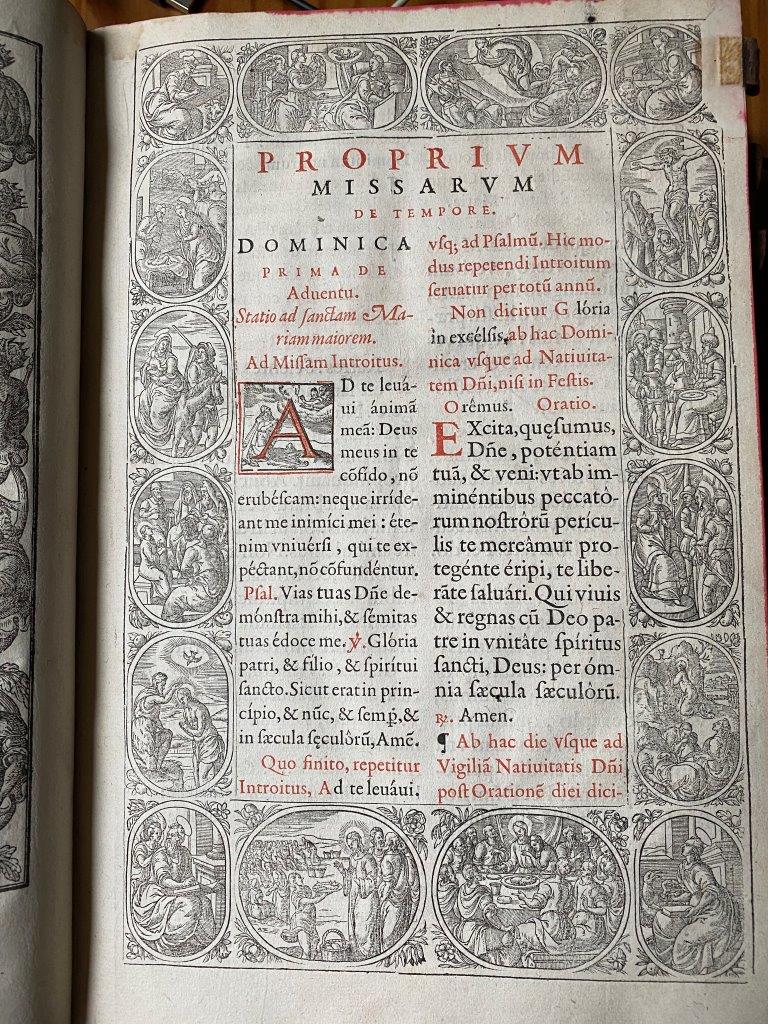 PROPRIVM
MISSARVM
DE TEMPORE.
DOMINICA
PRIMA DE
Aduentu.
Statio ad sanctam Ma-
riam maiorem.
Ad Missam Introitus.
AD te leuá-
ui ánimã
meã: Deus
meus in te
cõfido, nõ
erubéscam: neque irríde-
ant me inimíci mei: éte-
nim vniuérsi, qui te ex-
péctant, nõ cõfundéntur.
Psal. Vias tuas Dñe de-
mónstra mihi, & sémitas
tuas édoce me. ℣. Glória
patri, & filio, & spirítui
sancto. Sicut erat in prin-
cípio, & nũc, & semp̱, &
in sæcula sęculôrũ, Amẽ.
Quo finito, repetitur
Introitus, Ad te leuáui.
vsq; ad Psalmũ. Hic mo-
dus repetendi Introitum
seruatur per totũ annũ.
Non dicitur Glória
in excélsis, ab hac Domi-
nica vsque ad Natiuita-
tem Dñi, nisi in Festis.
Orêmus. Oratio.
EXcita, quęsumus,
Dñe, poténtiam
tuã, & veni: vt ab im-
minéntibus peccatô-
rum nostrôrũ perícu-
lis te mereâmur pro-
tegénte éripi, te libe-
râte saluári. Qui viuis
& regnas cũ Deo pa-
tre in vnitâte spíritus
sancti, Deus: per óm-
nia sæcula sæculôrũ.
℟. Amen.
¶ Ab hac die vsque ad
Vigiliã Natiuitatis Dñi
post Orationẽ diei dici-